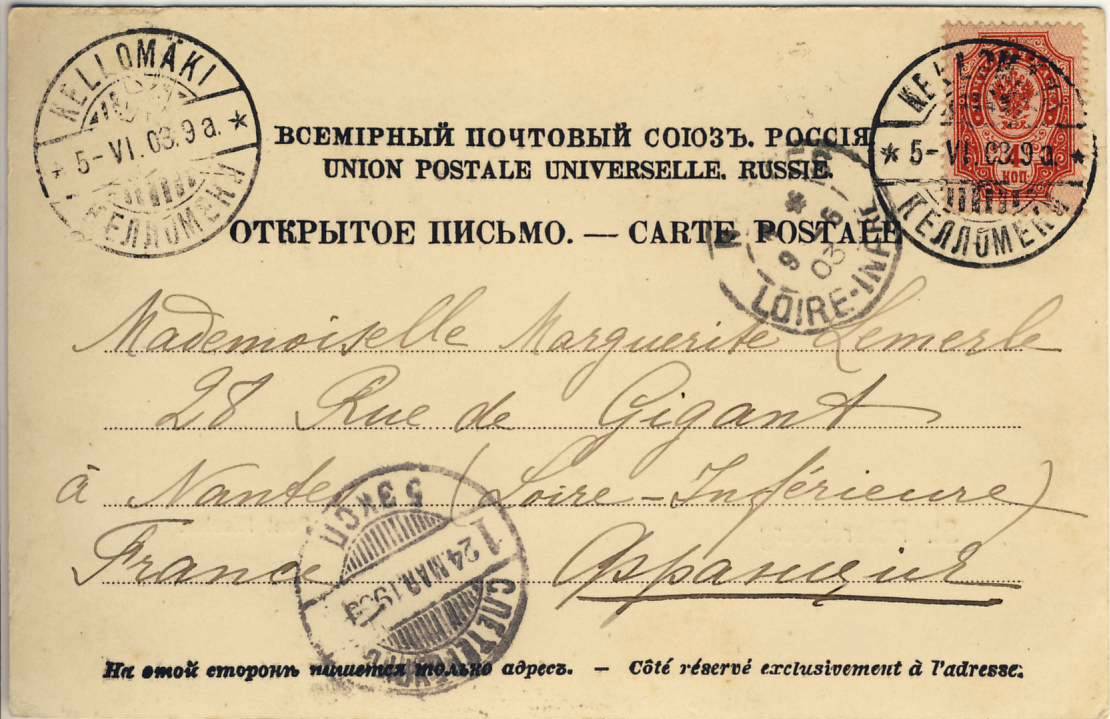 KELLOMÄKI
5-VI.03.9a.
КЕЛЛОМЕКИ
ВСЕМІРНЫЙ ПОЧТОВЫЙ СОЮЗЪ. РОССІЯ
UNION POSTALE UNIVERSELLE. RUSSIE.
4
КОП
5-VI.03.9a
КЕЛЛОМЕКИ
ОТКРЫТОЕ ПИСЬМО. — CARTE POSTALE
9 6
03
LOIRE-INFRE
Mademoiselle Marguerite Lemerle
28 Rue de Gigant
à Nantes (Loire-Inférieure)
France Франція
5 ЭКСП
1
24 МАЯ 1903
На этой сторонѣ пишется только адресъ. — Côté réservé exclusivement à l'adresse.